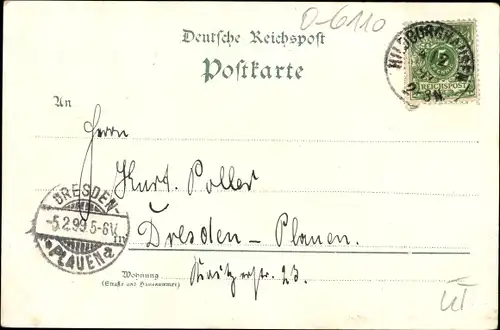 0-6110
Deutsche Reichspost
Postkarte
HILDBURGHAUSEN
12
2-3N.
5
REICHSPOST
An
Herrn
Kurt Poller
DRESDEN-
-5.2.99.5-6V.
PLAUEN a
in
Dresden-Plauen.
Wohnung
(Straße und Hausnummer)
23.